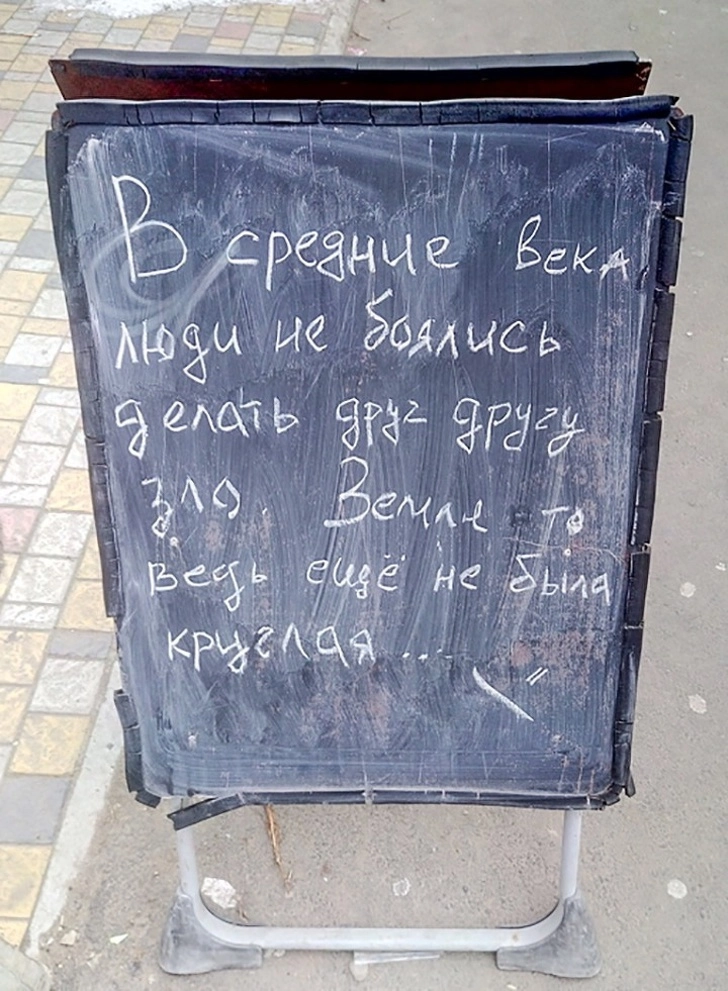 В средние века
люди не боялись
делать друг другу
зло. Земля то
ведь ещё не была
круглая...